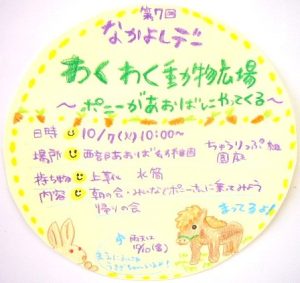 第7回
なかよしデー
わくわく動物広場
～ポニーがあおばにやってくる～
日時 10/7(火)10:00～
場所 西部あおば幼稚園 ちゅうりっぷ組
園庭
持ち物 上靴 水筒
内容 朝の会・みんなとポニーさんに乗ってみよう
帰りの会
まってるよ!
雨天は
10/10(金)